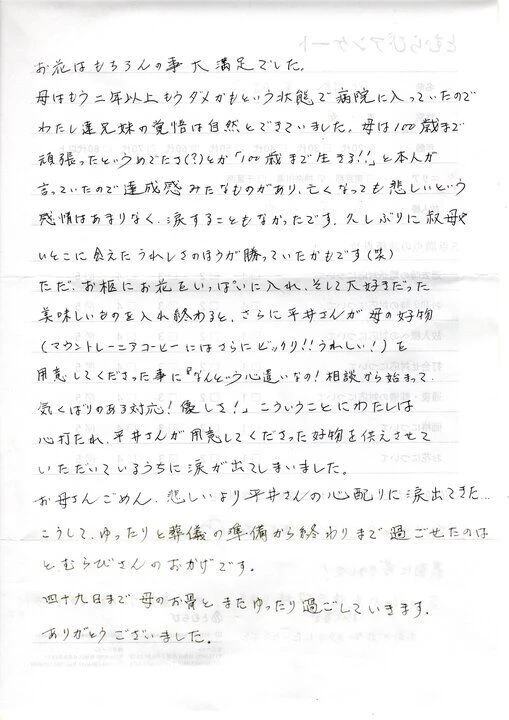 お花はもちろんの事大満足でした。
母はもう二年以上もうダメかもという状態で病院に入っていたので
わたし達兄妹の覚悟は自然とできていました。母は100歳まで
頑張ったといううめでたさ(?)とか「100歳まで生きる!!」と本人が
言っていたので達成感みたなものがあり、亡くなっても悲しいという
感情はあまりなく、涙することもなかったです。久しぶりに叔母や
いとこに会えたうれしさのほうが勝っていたかもです(笑)
ただ、お柩にお花をいっぱいに入れ、そして大好きだった
美味しいものを入れ終わると、さらに平井さんが母の好物
(マウントレーニアコーヒーにはさらにビックリ!!うれしい!)を
用意してくださった事に『なんという心遣いなの!相談から始まって、
気くばりのある対応!優しさ!」こういうことにわたしは
心打たれ、平井さんが用意してくださった好物を供えさせて
いただいているうちに涙が出てしまいました。
お母さんごめん、悲しいより平井さんの心配りに涙出てきた…
こうして、ゆったりと葬儀の準備から終わりまで過ごせたのは
とむらびさんのおかげです。
四十九日まで母のお骨と、またゆったり過ごしていきます。
ありがとうございました。
とむらびアンケート